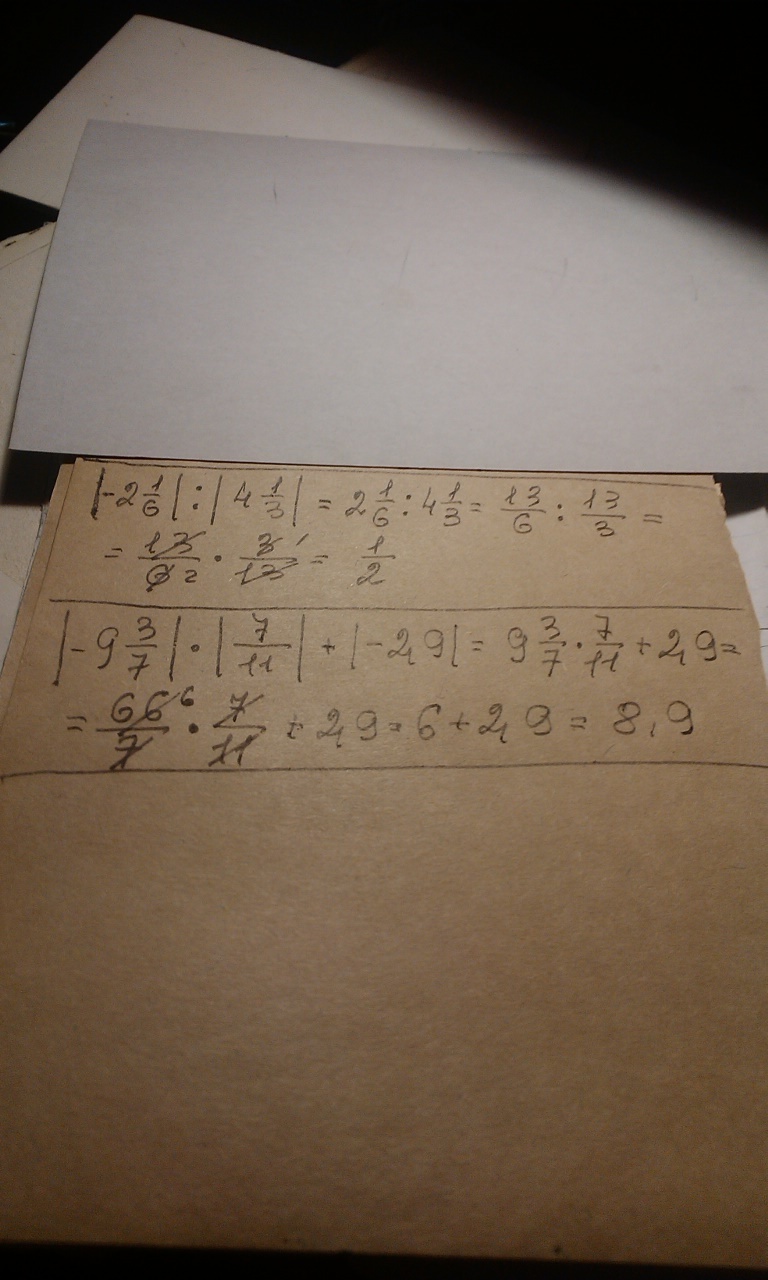 |-2 1/6| : |4 1/3| = 2 1/6 : 4 1/3 = 13/6 : 13/3 =
= 13/6 2 · 3 1/13 = 1/2
|-9 3/7| · |7/11| + |-2,9| = 9 3/7 · 7/11 + 2,9 =
= 66 6/7 · 7/11 + 2,9 = 6 + 2,9 = 8,9